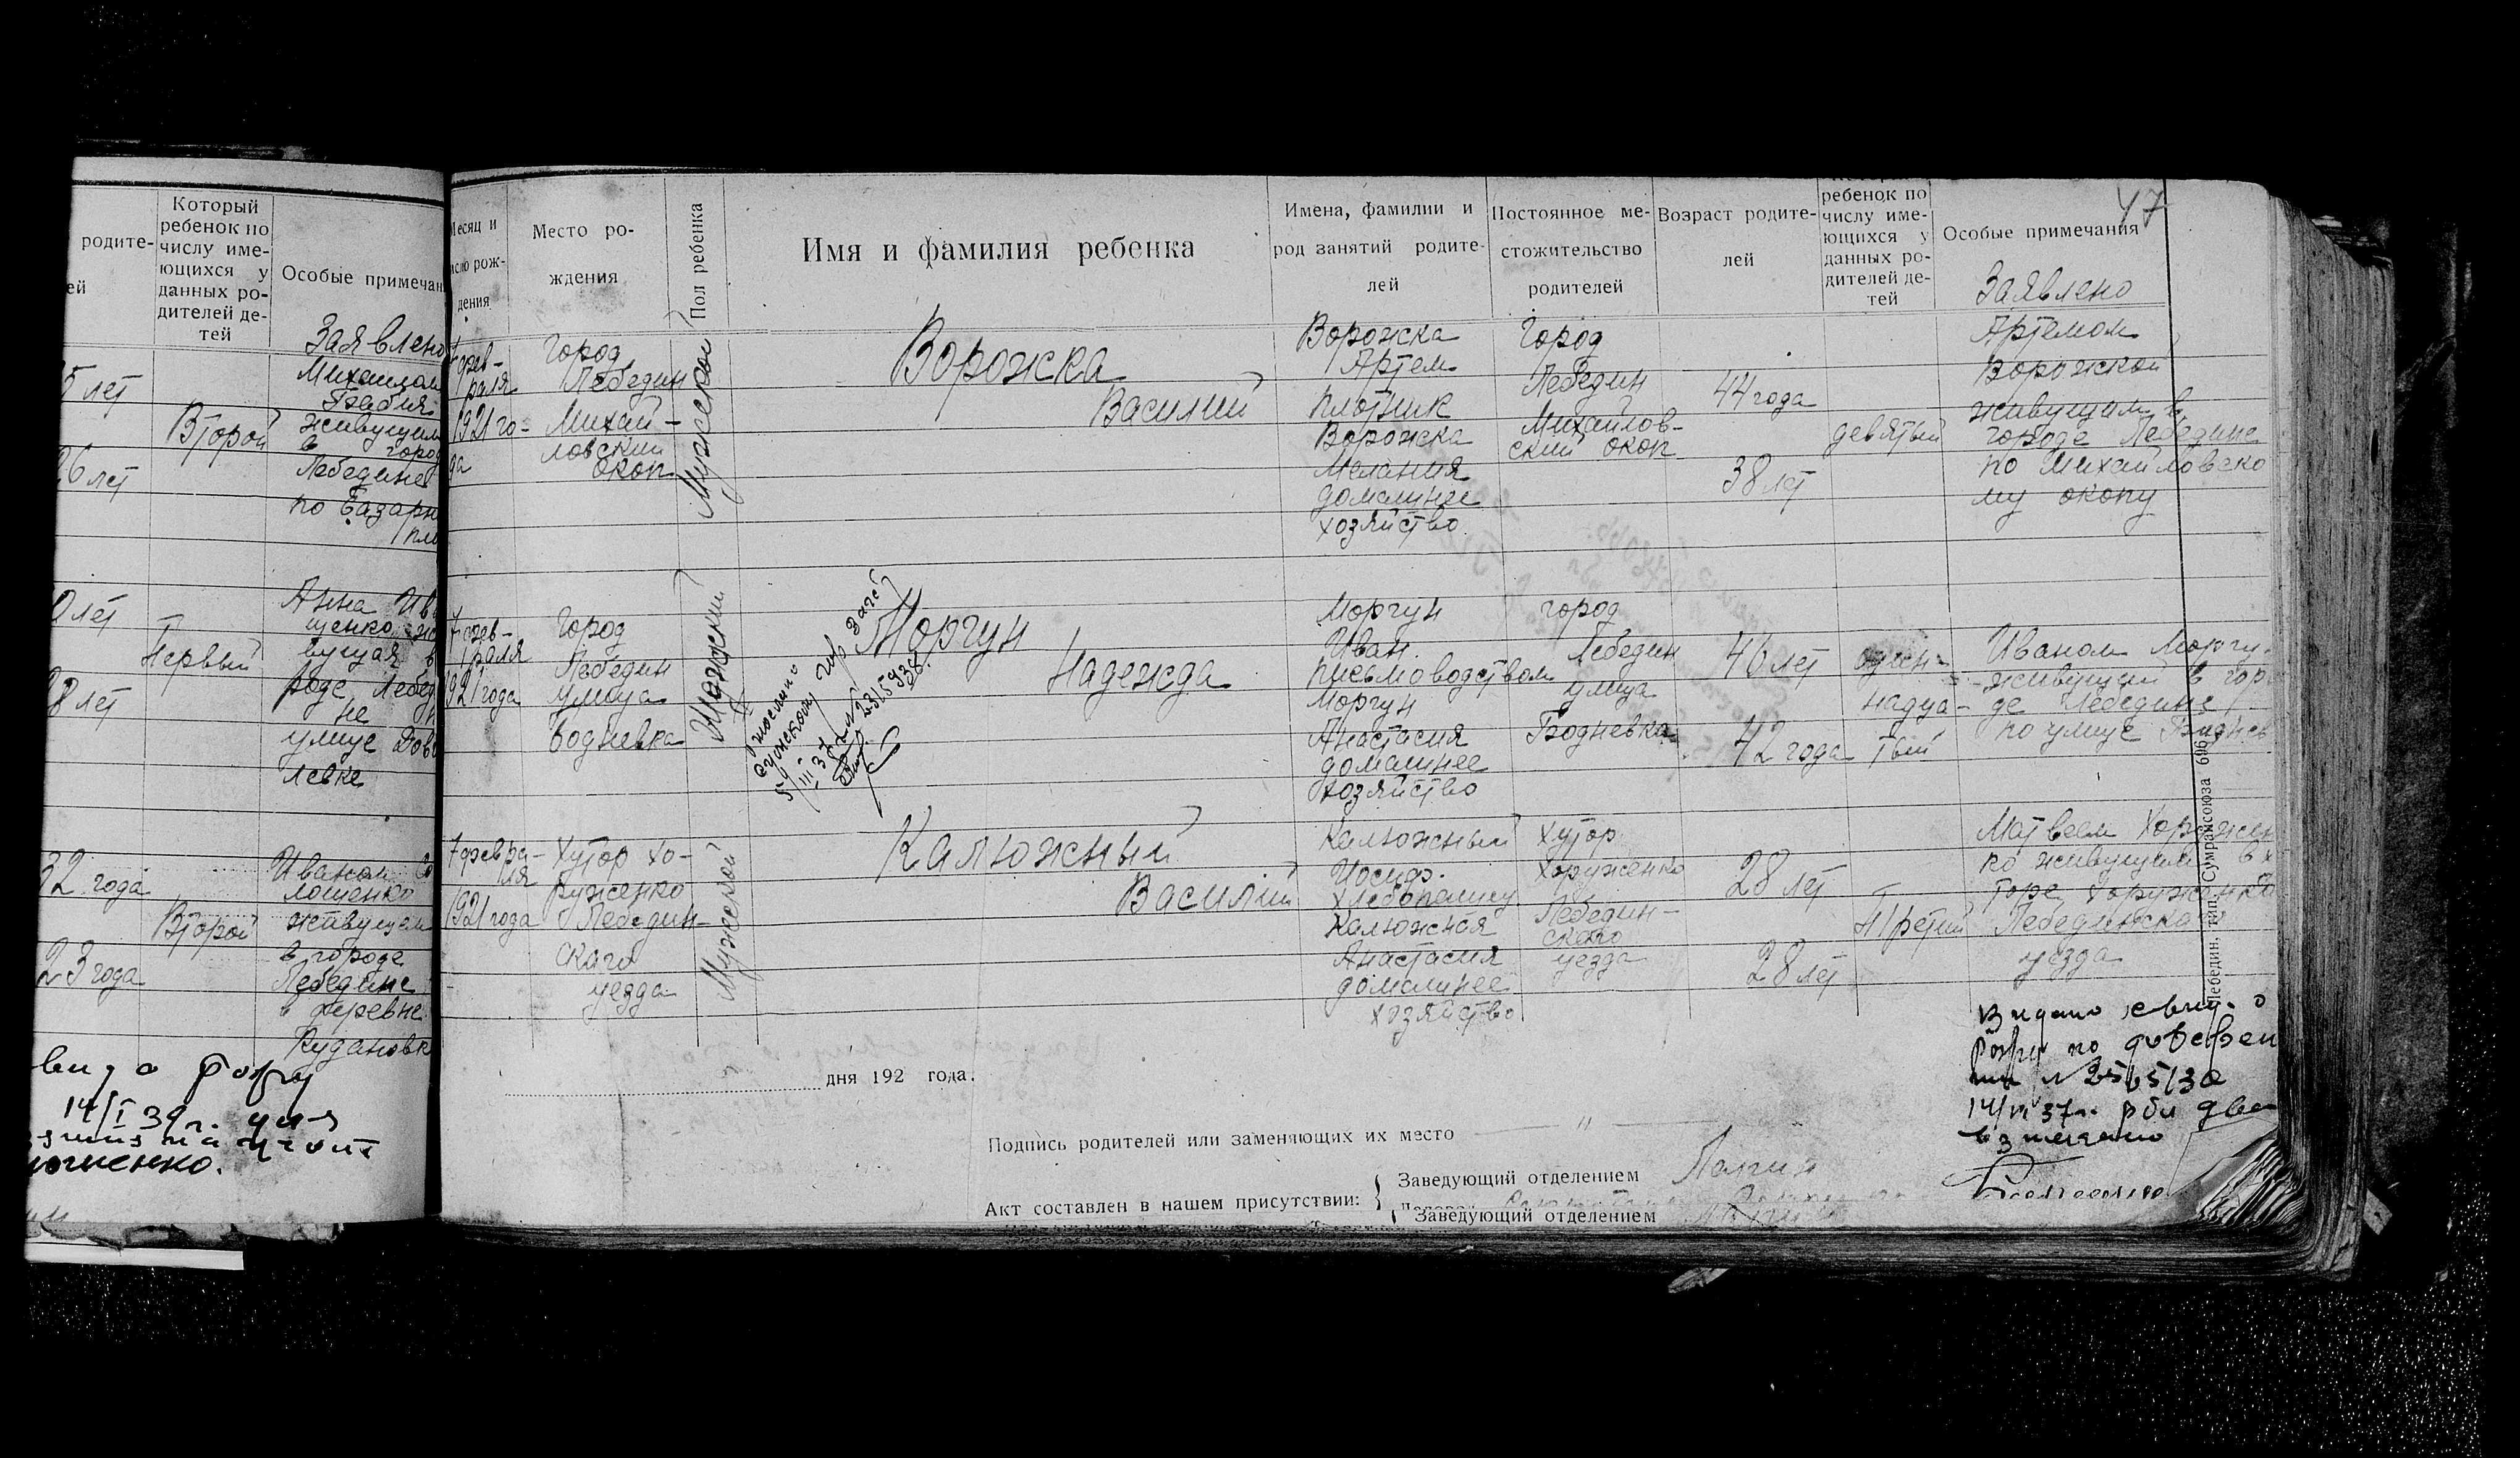 родите-
ей
Который
ребенок по
числу име-
ющихся у
данных ро-
дителей де-
тей
Особые примечан
Заявлено
5 лет
26 лет
Второй
Михаилом
Бабия
живущим
в город
Лебедине
по Базарн
0 лет
28 лет
Первый
Анна Ива
щенко жи
вущая в
роде Лебед
не
улице
левке
32 года
23 года
Второй
Иваном
лошенко
живущем
в городе
Лебедине
в деревне
Кудановк
14/I 39 г.
Месяц и
число рож-
дения
Место ро-
ждения
Пол ребенка
Имя и фамилия ребенка
Имена, фамилии и
род занятий родите-
лей
Постоянное ме-
стожительство
родителей
Возраст родите-
лей
ребенок по
числу име-
ющихся у
данных ро-
дителей де-
тей
Особые примечания
47
Заявлено
фев-
раля
1921 го-
да
Город
Лебедин
Михай-
ловский
окоп
Мужеский
Ворожка
Василий
Ворожка
Артем
плотник
Ворожка
Мелания
домашнее
хозяйство
Город
Лебедин
Михайлов-
ский окоп
44 года
38 лет
девятый
Артемом
Ворожкой
живущим в
городе Лебедине
по Михайловско
му окопу
7 фев-
раля
1921 года
Город
Лебедин
улица
Бодневка
Женский
Моргун
Надежда
Моргун
Иван
письмоводством
Моргун
Анастасия
домашнее
хозяйство
город
Лебедин
улица
Бодневка
46 лет
42 года
один-
надца-
тый
Иваном Моргу
живущий в гор
де Лебедине
по улице Боднев
7 февра-
ля
1921 года
Хутор Хо-
руженко
Лебедин-
скаго
уезда
Мужеской
Калюжный
Василий
Калюжный
Иосиф
хлебопашец
Калюжная
Анастасия
домашнее
хозяйство
хутор
Хоруженко
Лебедин-
ского
уезда
28 лет
28 лет
Третий
Матвеем Хоружен
ко живущим в х
торе Хоруженко
Лебединска
уезда
Лебедин. тип. Сумрайсоюза 696
дня 192 года.
Подпись родителей или заменяющих их место
Акт составлен в нашем присутствии:
Заведующий отделением
Заведующий отделением